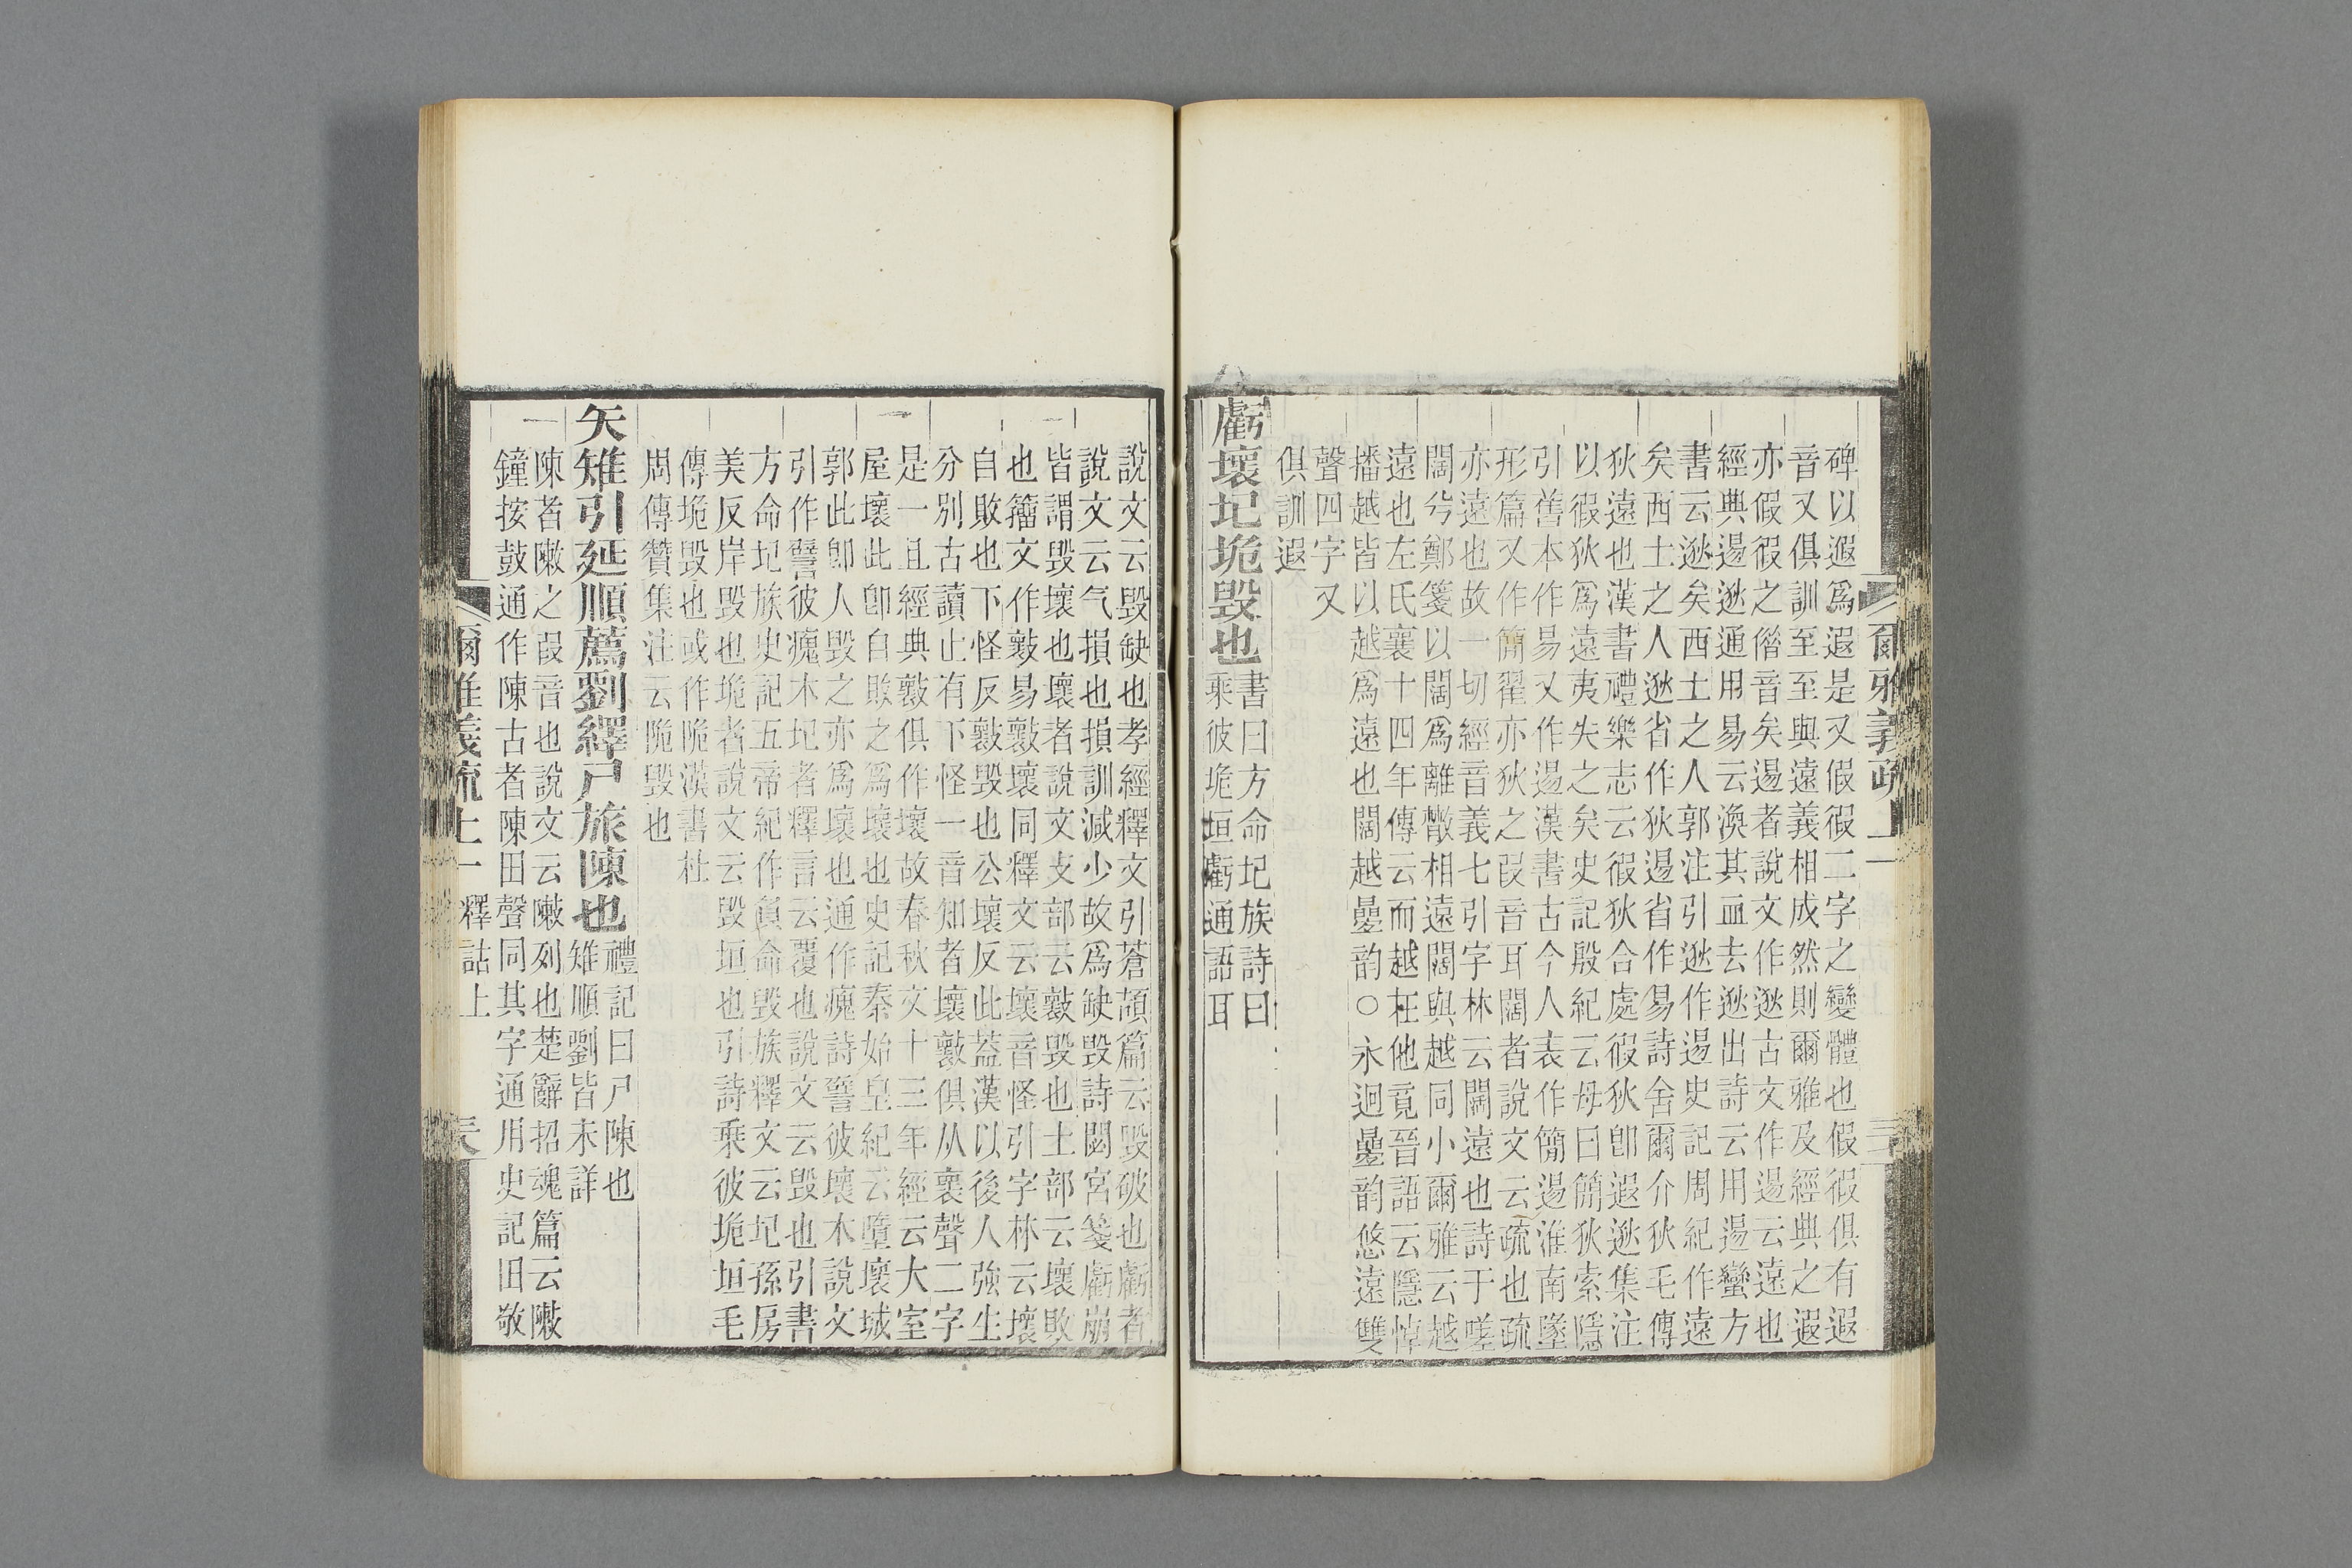 爾雅義疏 上一
碑以遐爲遐是又假徦二字之變體也假徦俱有遐
音又俱訓至至與遠義相成然則爾雅及經典之遐
亦假徦之偺音矣逷者說文作逖古文作逷云遠也
經典逷逖通用易云渙其血去逖出詩云用逷蠻方
書云逖矣西土之人郭注引逖作逷史記周紀作遠
矣西土之人逖省作狄逷省作易詩舍爾介狄毛傳
狄遠也漢書禮樂志云徦狄合處徦狄卽遐逖集注
以徦狄爲遠夷失之矣史記殷紀云母曰簡狄索隱
引舊本作易又作逷漢書古今人表作簡逷淮南墬
形篇又作簡翟亦狄之叚音耳闊者說文云疏也疏
亦遠也故一切經音義七引字林云闊遠也詩于嗟
闊兮鄭箋以闊爲離散相遠闊與越同小爾雅云越
遠也左氏襄十四年傳云而越在他竟晉語云隱悼
播越皆以越爲遠也闊越曡韵○永迥曡韵悠遠雙
聲四字又
俱訓遐
虧壞圮垝毀也書曰方命圮族詩曰
乘彼垝垣虧通語耳
說文云毀缺也孝經釋文引蒼頡篇云毀破也虧者
說文云气損也損訓減少故爲缺毀詩閟宮箋虧崩
皆謂毀壞也壞者說文攴部云𣀩毀也土部云壞敗
也籀文作𣀩易𣀩壞同釋文云壞音怪引字林云壞
自敗也下怪反𣀩毀也公壞反此葢漢以後人強生
分別古讀止有下怪一音知者壞𣀩俱从褱聲二字
是一且經典𣀩俱作壞故春秋文十三年經云大室
屋壞此卽自敗之爲壞也史記秦始皇紀云墮壞城
郭此卽人毀之亦爲壞也通作瘣詩譬彼壞木說文
引作譬彼瘣木圮者釋言云覆也說文云毀也引書
方命圮族史記五帝紀作負命毀族釋文云圮孫房
美反岸毀也垝者說文云毀垣也引詩乘彼垝垣毛
傳垝毀也或作陒漢書杜
周傳贊集注云陒毀也
矢雉引延順薦劉繹尸旅陳也禮記曰尸陳也
雉順劉皆未詳
陳者敶之叚音也說文云敶列也楚辭招魂篇云敶
鐘按鼓通作陳古者陳田聲同其字通用史記田敬
爾雅義疏 上一 釋詁上